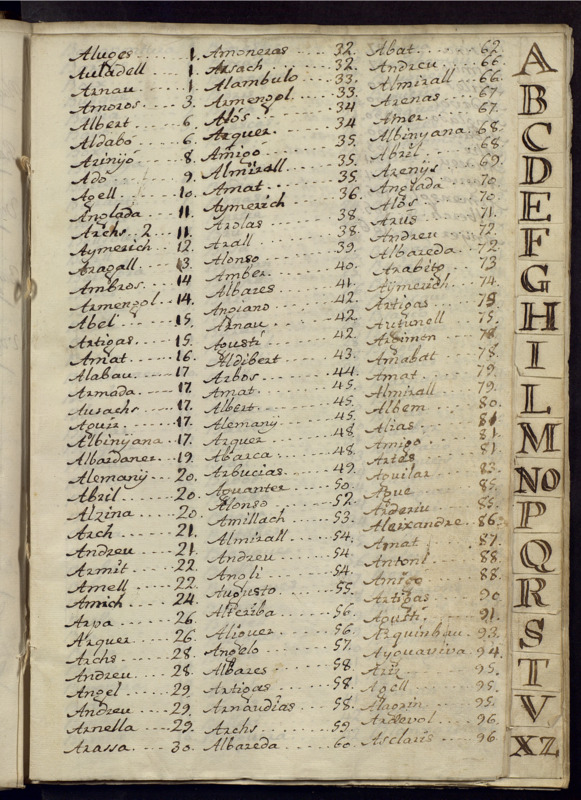 Aluges 1.
Auladell 1.
Arnau 1.
Amoros 3.
Albert 6.
Aldabo 6.
Arinyo 8.
Ado 9.
Agell 10.
Anglada 11.
Archs 2 11.
Aymerich 12.
Aragall 13.
Ambros 14
Armengol 14.
Abel 15.
Artigas 15.
Amat 16.
Alabau 17
Armada 17.
Ausachs 17.
Aguir 17.
Albinyana 17.
Albardaner 19.
Alemany 20.
Abril 20.
Alzina 20.
Arch 21.
Andreu 21.
Armit 22.
Amell 22.
Amich 24.
Arpa 26.
Arquer 26.
Archs 28.
Andreu 28.
Angel 29.
Andreu 29.
Arnella 29.
Arassa 30.
Amoneras 32.
Arsach 32.
Alambulo 33.
Armengol 33.
Alós 34
Arquer 34.
Amigo 35.
Almirall 35.
Amat 35.
Aymerich 36.
Arolas 38
Arall 38
Alonso 39.
Amber 40.
Albares 41.
Angiano 42.
Arnau 42.
Agusti 42.
Aldibert 43.
Arbos 44.
Amat 45.
Albert 45.
Alemany 45.
Arquer 48.
Abarca 48.
Arbucias 49.
Aguanter 50.
Alonso 52.
Amillach 53.
Almirall 54.
Andreu 54.
Angli 54.
Augusto 55.
Alteriba 56.
Aliquer 56.
Angelo 57.
Albares 58.
Artigas 58.
Arnaudias 58.
Archs 59.
Albareda 60.
Abat 62
Andreu 66.
Almirall 66.
Arenas 67
Amer 67.
Albinyana 68.
Abril 68
Arenys 69.
Anglada 70
Alós 70
Arus 71.
Andreu 72.
Albareda 72.
Arabéto 73
Aymerich 74.
Artigas 75
Autonell 75.
Arsimon
Amabat 78.
Amat 79.
Almirall 79.
Albem 80.
Alias 81
Amigo 81.
Artés 81
Aguilar 83.
Ague 85.
Arderiu 85.
Aleixandre 86.
Amat 87.
Antoni 88.
Amigo 88.
Artigas 90.
Agusti 91.
Arquinbau 93.
Ayguaviva 94.
Ariz 95.
Agell 95.
95.
Ardevol 96.
Asclaris 96
A
B
C
D
E
F
G
H
I
L
M
NO
P
Q
R
S
T
V
XZ